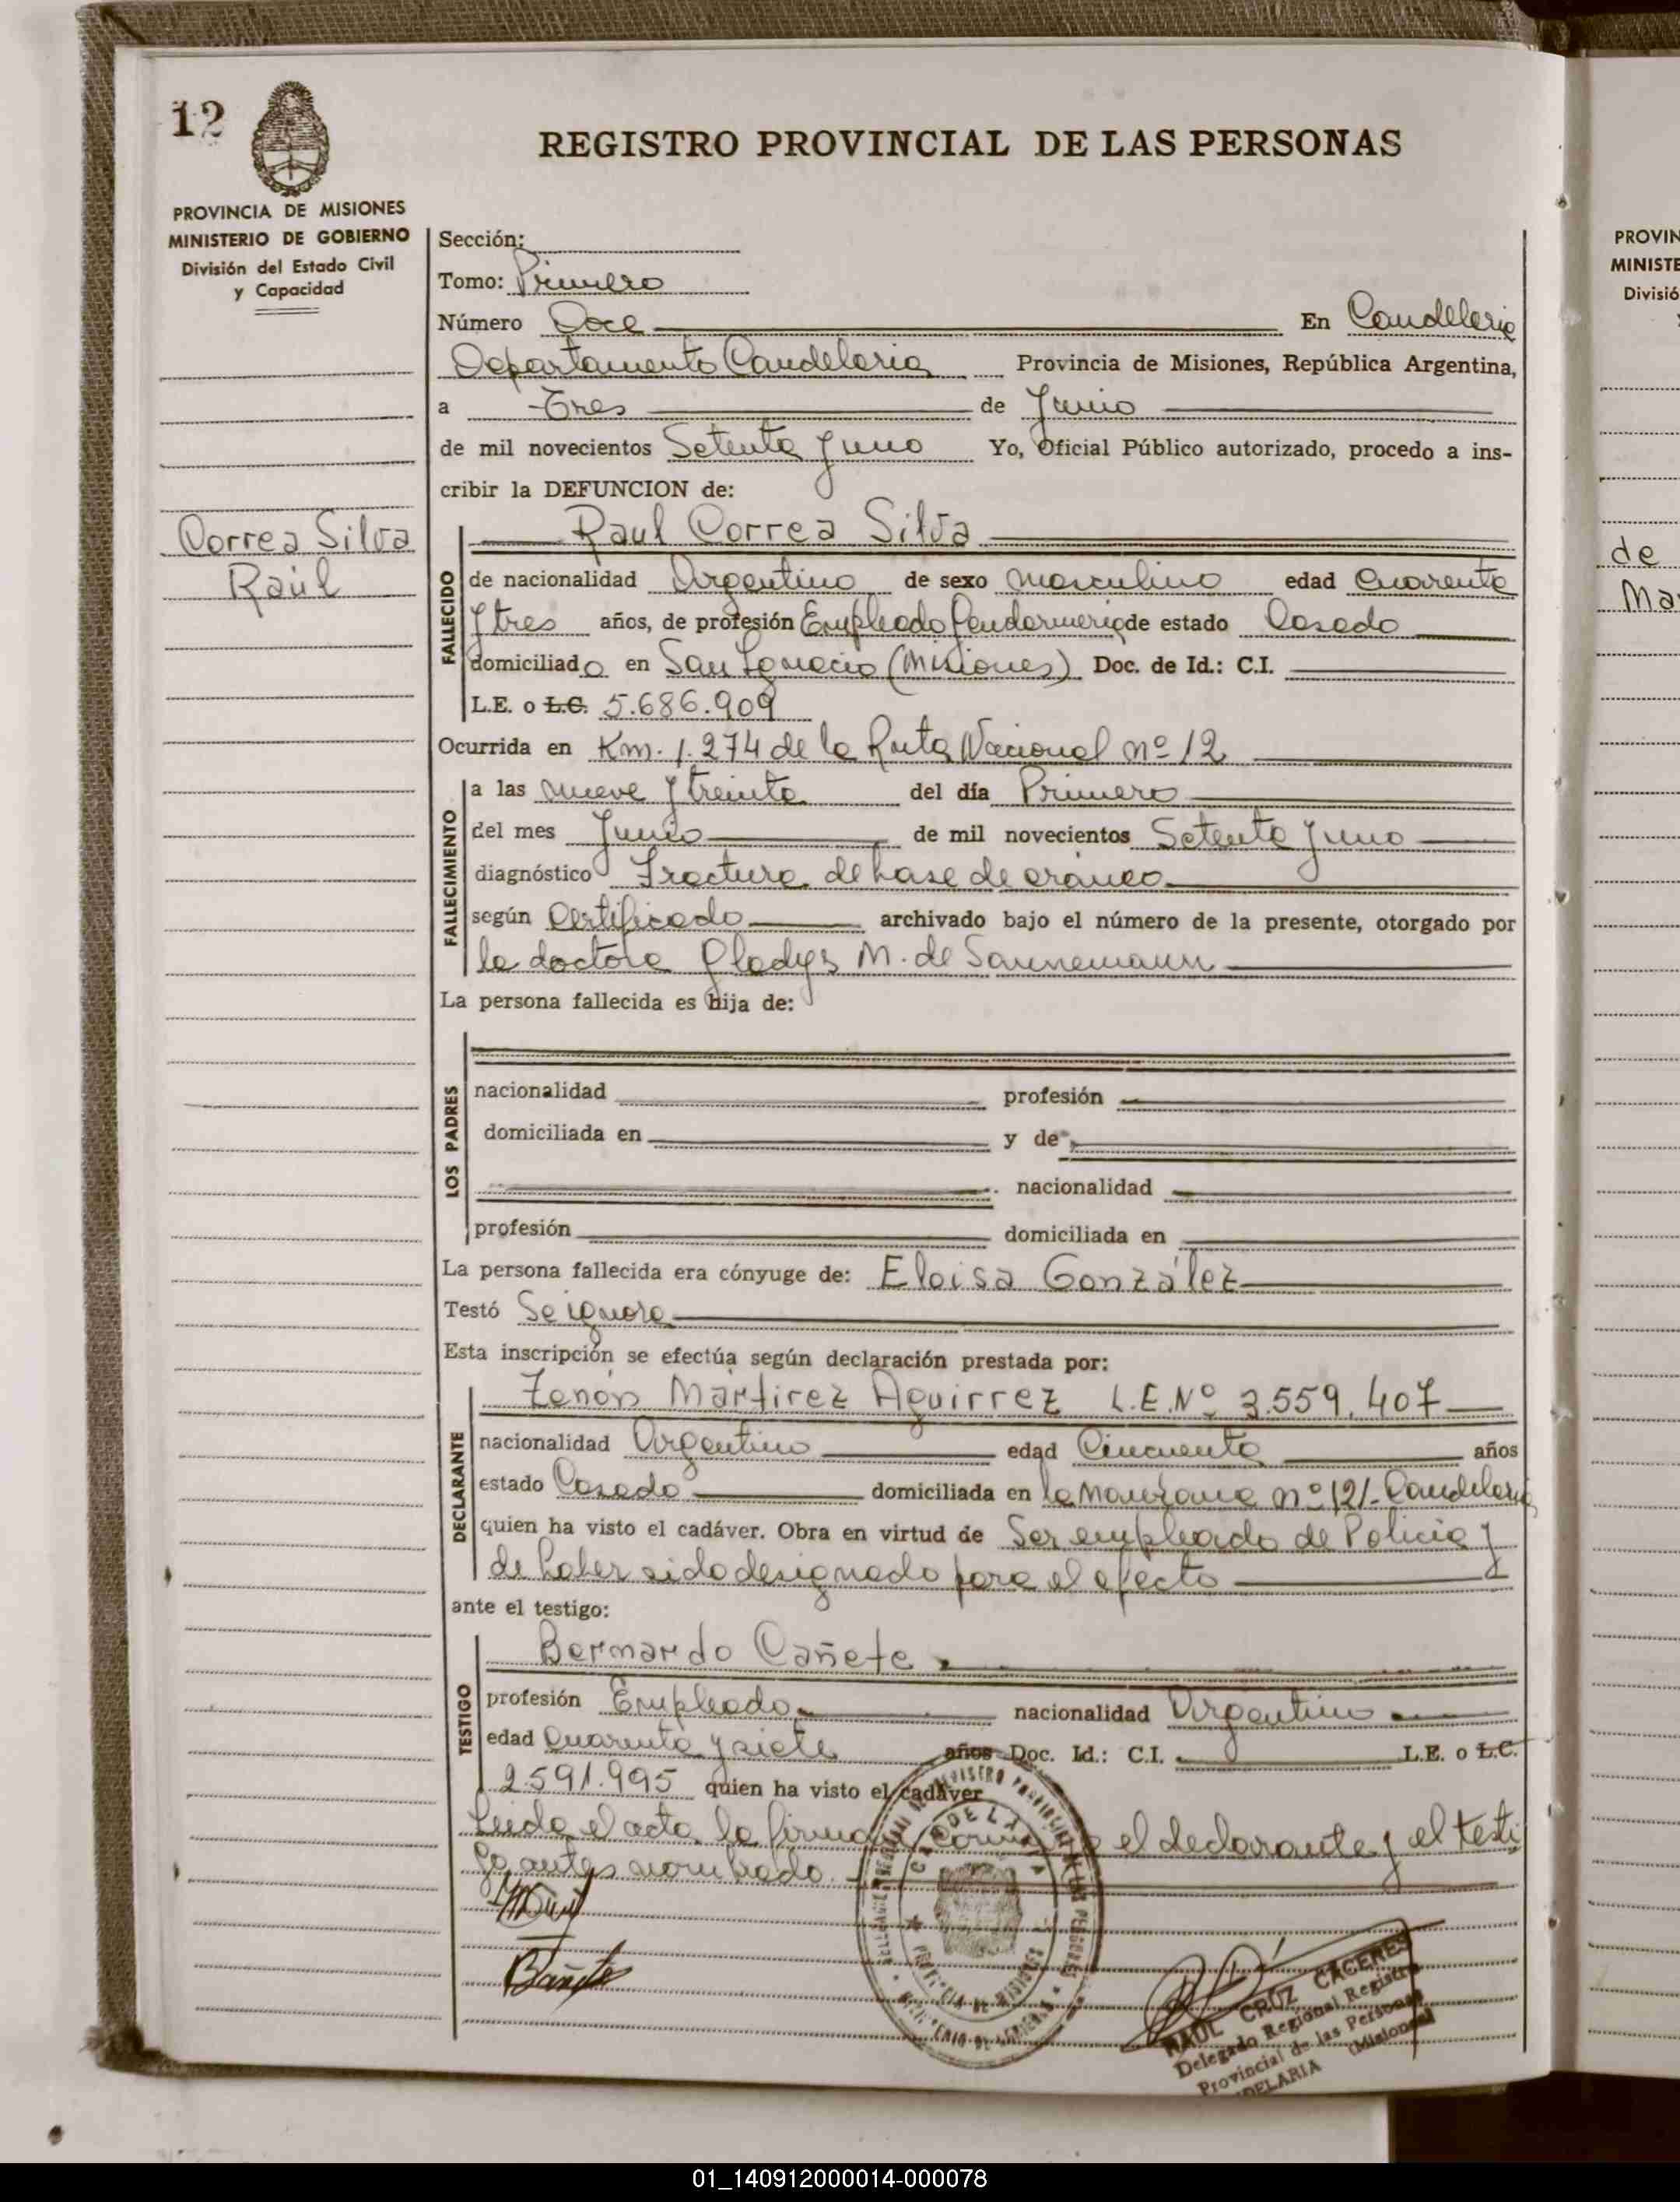 12
REGISTRO PROVINCIAL DE LAS PERSONAS
PROVINCIA DE MISIONES
MINISTERIO DE GOBIERNO
División del Estado Civil
y Capacidad
Correa Silva
Raúl
Sección:
Tomo: Primero
Número Doce En Candelaria
Departamento Candelaria Provincia de Misiones, República Argentina,
a Tres de Junio
de mil novecientos Setenta y uno Yo, Oficial Público autorizado, procedo a ins-
cribir la DEFUNCION de:
Raul Correa Silva
FALLECIDO
de nacionalidad Argentino de sexo masculino edad Cuarenta
y tres años, de profesión Empleado Gendarmeria de estado Casado
domiciliado en San Ignacio (Misiones) Doc. de Id.: C.I.
L.E. o L.C. 5.686.909
Ocurrida en Km. 1.274 de la Ruta Nacional nº 12
FALLECIMIENTO
a las nueve y treinta del día Primero
del mes Junio de mil novecientos Setenta y uno
diagnóstico Fractura de base de cráneo
según Certificado archivado bajo el número de la presente, otorgado por
la doctora Gladys M. de Sannemann
La persona fallecida es hija de:
LOS PADRES
nacionalidad profesión
domiciliada en y de
nacionalidad
profesión domiciliada en
La persona fallecida era cónyuge de: Eloisa González
Testó Se ignora
Esta inscripción se efectúa según declaración prestada por:
Zenón Mártirez Aguirrez L.E.Nº 3.559.407
DECLARANTE
nacionalidad Argentino edad Cincuenta años
estado Casado domiciliada en la Manzana nº 121- Candelaria
quien ha visto el cadáver. Obra en virtud de Ser empleado de Policia y
de haber sido designado para el efecto
ante el testigo:
Bernardo Cañete
TESTIGO
profesión Empleado nacionalidad Argentino
edad Cuarenta y siete años Doc. Id.: C.I. L.E. o L.C.
2.591.995 quien ha visto el cadáver
Leida el acta, la firman el declarante y el testi
go antes nombrado.
Cañete
CANDELARIA
PROVINCIA DE MISIONES
RAUL CRUZ CACERES
Delegado Regional Registro
Provincial de las Personas
(Misiones)
PROVIN
MINISTE
Divisió
de
Ma
01_140912000014-000078